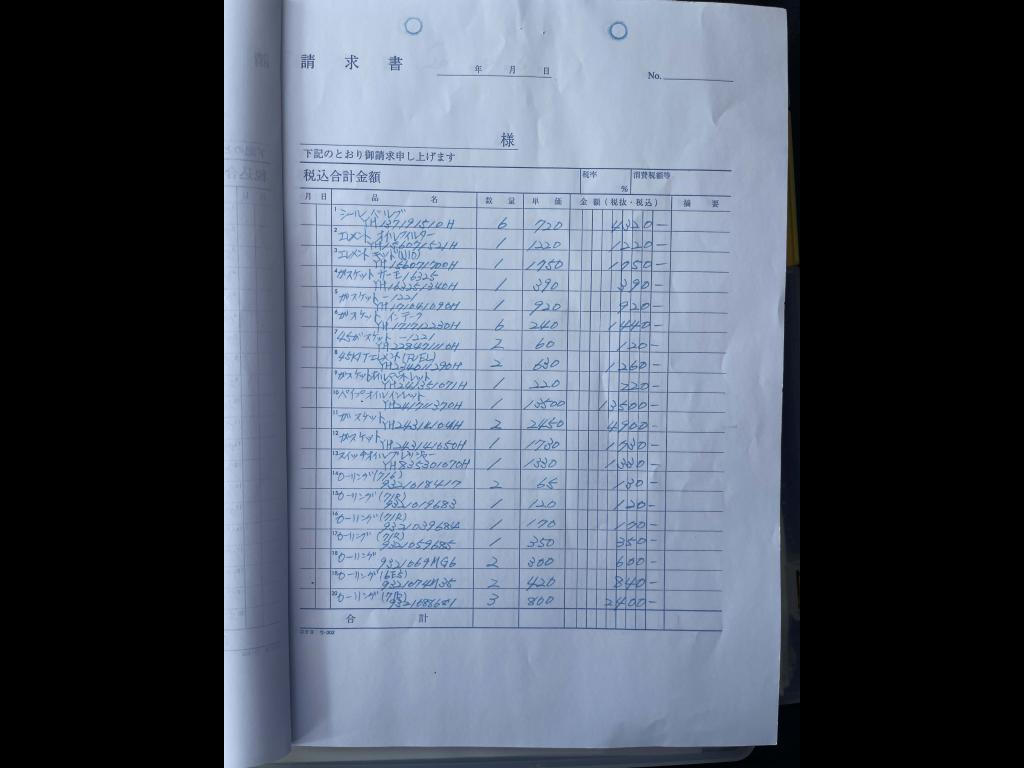 請 求 書
年 月 日
No.
様
下記のとおり御請求申し上げます
税込合計金額 税率 % 消費税額等
月 日 品 名 数 量 単 価 金 額 (税抜・税込) 摘 要
1 シール バルブ
YH137191510H 6 720 4320-
2 エレメント オイルフィルター
YH156071521H 1 1220 1220-
3 エレメント
YH156071700H 1 1750 1750-
4 ガスケット サーモ16325
YH163251340H 1 390 390-
5 ガスケット -1221
YH171041090H 1 920 920-
6 ガスケット インテーク
YH171712230H 6 240 1440-
7 45ガスケット -1221
2 60 120-
8 エレメント(FUEL)
YH234011290H 2 630 1260-
9 ガスケット
YH241351071H 1 220 220-
10 パイプオイルインレット
YH241711370H 1 13500 13500-
11 ガスケット
2 2450 4900-
12 ガスケット
YH243141650H 1 1730 1730-
13 スイッチオイルプレッシャー
YH835301070H 1 1330 1330-
14 Oーリング(716)
9321018417 2 65 130-
15 Oーリング(71R)
9321019683 1 120 120-
16 Oーリング(71R)
932103968A 1 170 170-
17 Oーリング(71R)
9321059685 1 350 350-
18 Oーリング
9321069MG6 2 300 600-
19 Oーリング(6E5)
9321074M35 2 420 840-
20 Oーリング(71R)
3 800 2400-
合 計